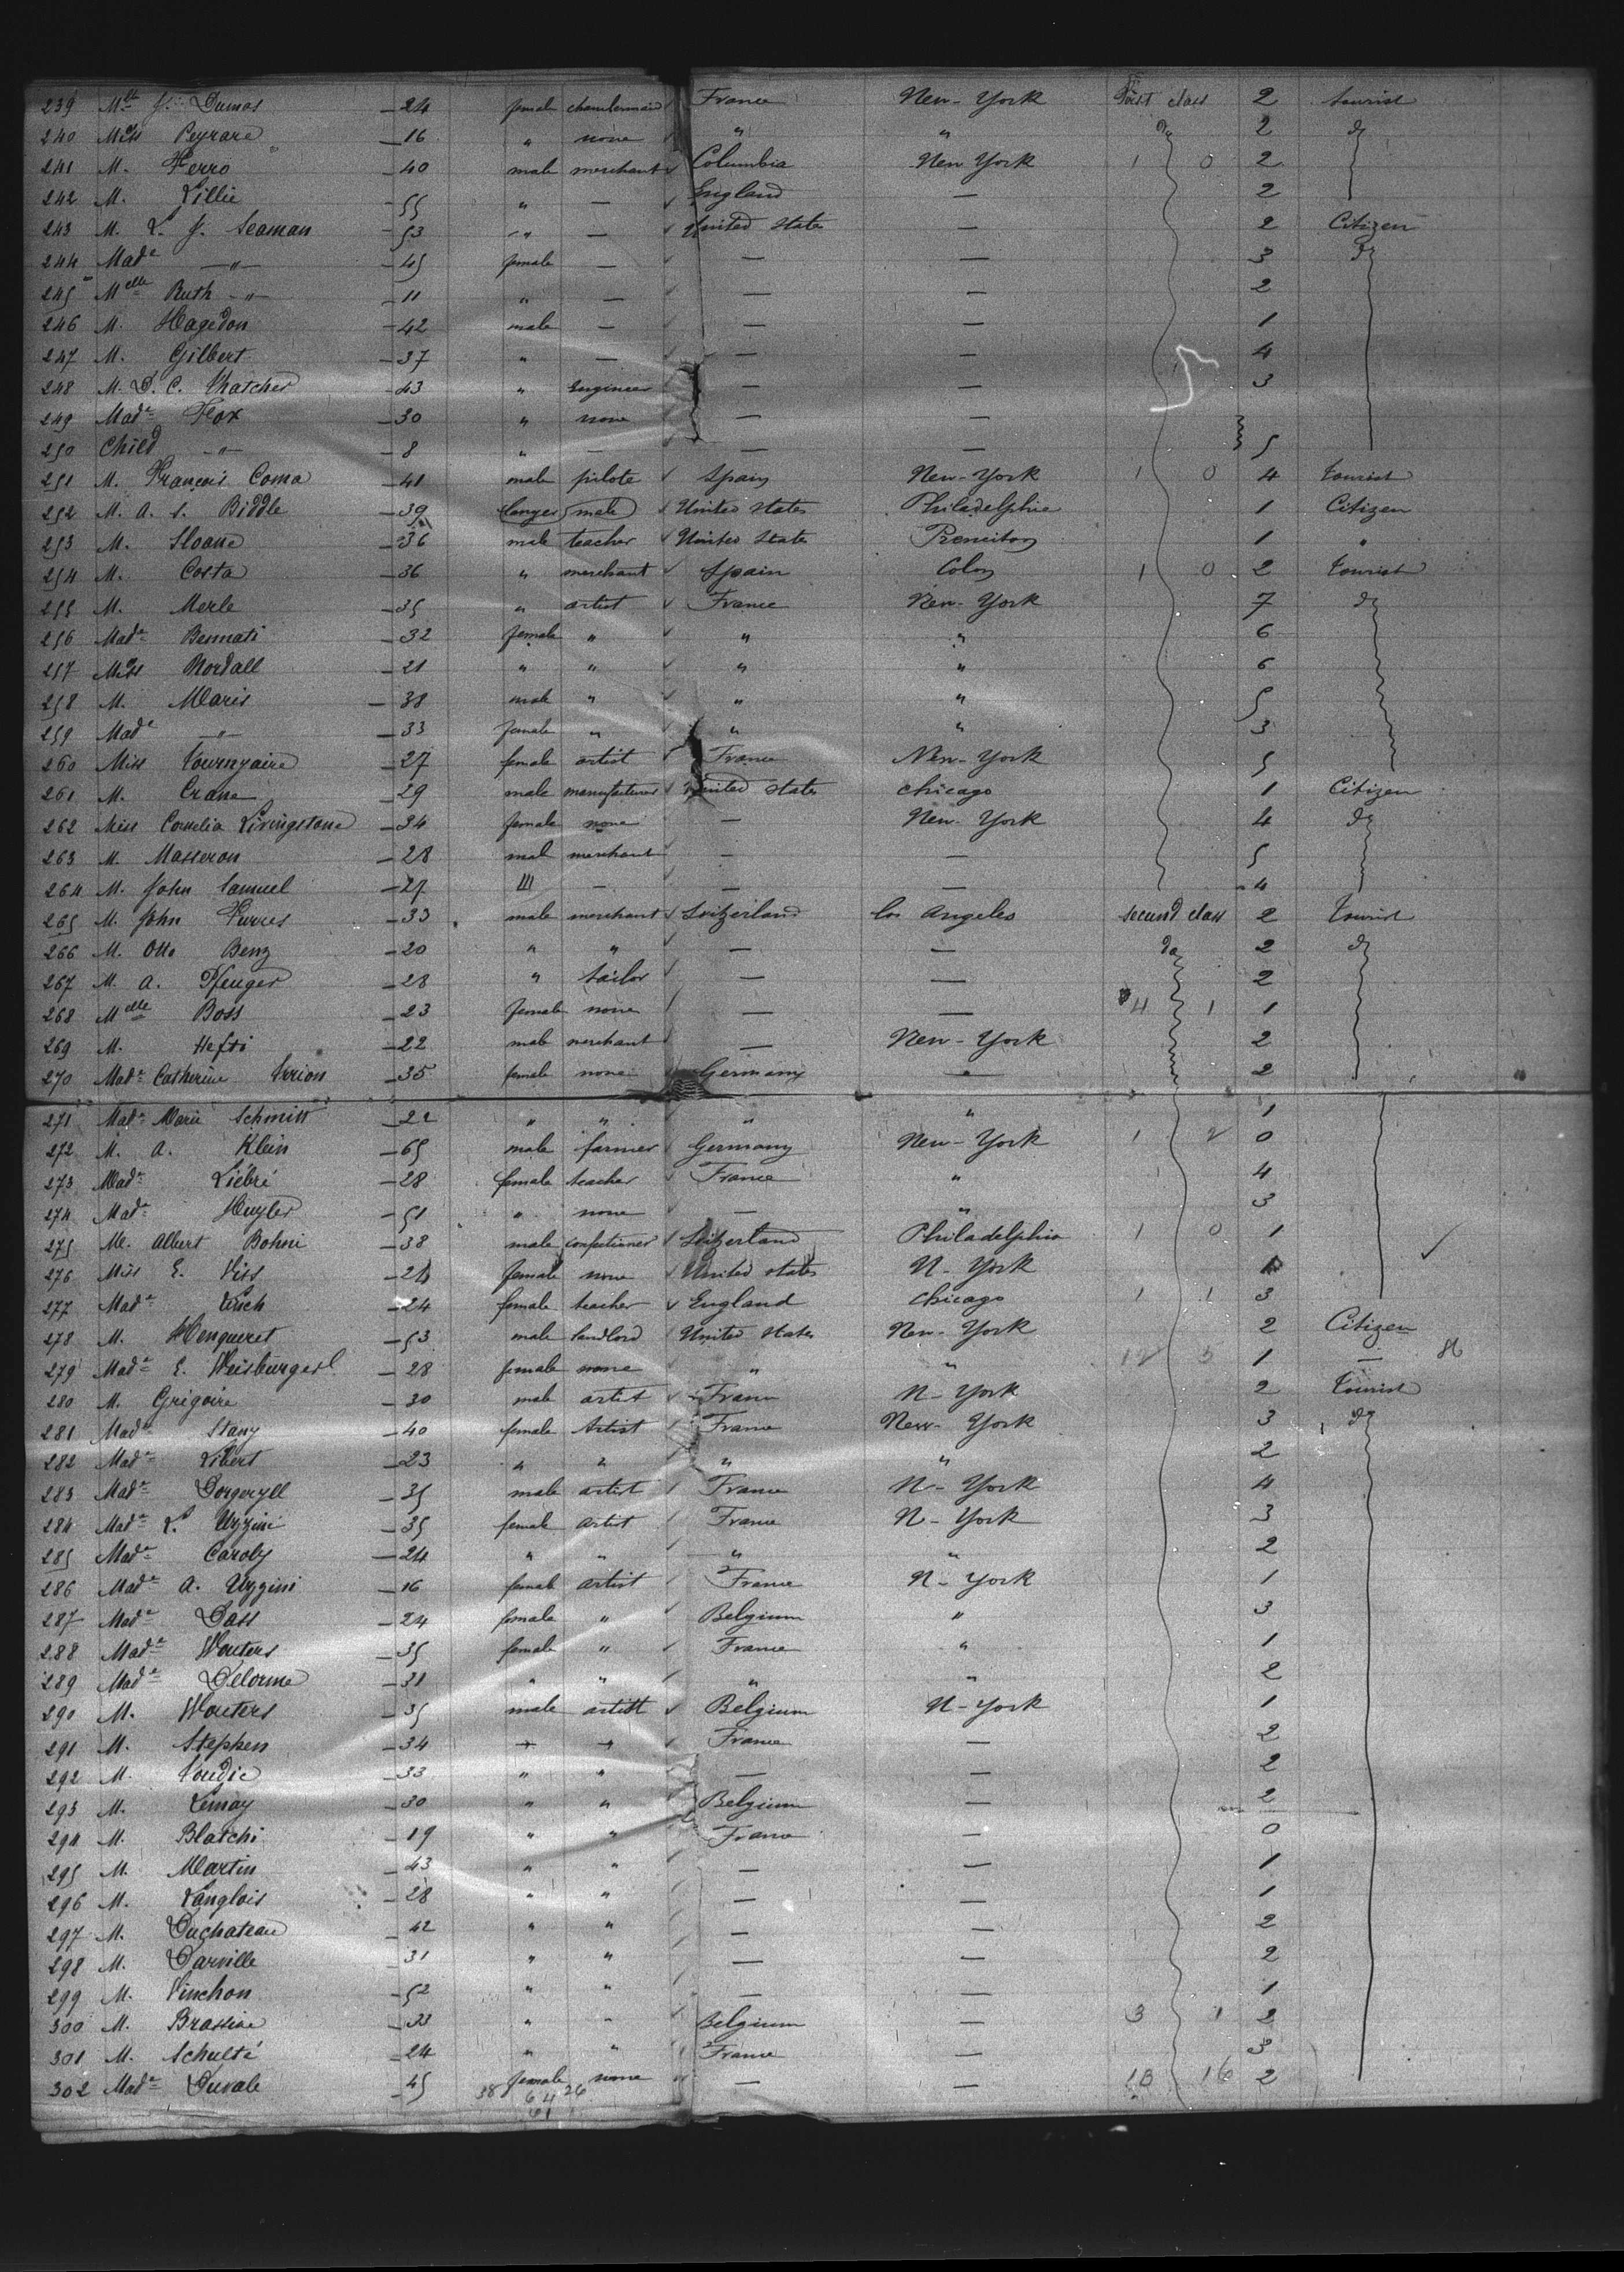 239 Mlle J. Dumas 24 female chambermaid France New-York First class 2 tourist
240 Miss Peyrare 16 " none " " do 2 do
241 M. Ferro 40 male merchant Columbia New York 1 0 2
242 M. Lillie 55 " — England — 2
243 M. L. J. Seaman 53 " — United States — 2 Citizen
244 Made —"— 45 female — — — 3 do
245 Melle Ruth —"— 11 " — — — 2
246 M. Hagedon 42 male — — — 1
247 M. Gilbert 37 " — — — 4
248 M. D. C. Thatcher 43 " Engineer — — 3
249 Made Fox 30 " none — —
250 Child —"— 8 " — — — 5
251 M. François Coma 41 male pilote Spain New-York 1 0 4 tourist
252 M. A. S. Biddle 39 male United States Philadelphie 1 Citizen
253 M. Sloane 36 male teacher United State 1 "
254 M. Costa 36 " merchant Spain Colon 1 0 2 tourist
255 M. Merle 35 " artist France New-York 7 do
256 Made Bennati 32 female " " " 6
257 Miss Nordall 21 " " " " 6
258 M. Maris 38 male " " " 5
259 Made —"— 33 female " " " 3
260 Miss Tournyaire 27 female artist France New-York 5
261 M. Crane 29 male manufacturer United States Chicago 1 Citizen
262 Miss Cornelia Livingstone 34 female none — New-York 4 do
263 M. Masseron 28 mal merchant — — 5
264 M. John Samuel 27 — — — 4
265 M. John Furres 33 male merchant Switzerland los Angeles second class 2 Tourist
266 M. Otto Benz 20 " " — — do 2 do
267 M. A. Pfenger 28 " tailor — — 2
268 Melle Boss 23 female none — — 4 1 1
269 M. Hefti 22 male merchant — New-York 2
270 Made Catherine Irrion 35 female none Germany — 2
271 Made Marie Schmitt 22 " " " " 1
272 M. A. Klein 65 male farmer Germany New-York 1 2 0
273 Made Liébré 28 female teacher France " 4
274 Made Huyler 51 " none — " 3
275 M. Albert Bohni 38 male confectioner Switzerland Philadelphia 1 0 1
276 Miss E. Viss 24 female none United states N-York
277 Made 24 female teacher England Chicago 1 1 3
278 M. Henqueret 53 male landlord United States New-York 2 Citizen
279 Made E. Weisburgerl 28 female none " " 12 5 1 — 86
280 M. Grégoire 30 male artist France N-York 2 Tourist
281 Made Stany 40 female Artist France New-York 3 do
282 Made Libert 23 " " " " 2
283 Made Dorgeryll 35 male artist France N-York 4
284 Made L. Uzzini 35 female artist France N-York 3
285 Made Caroly 24 " " " " 2
286 Made A. Uzzini 16 female artist France N-York 1
287 Made Dass 24 female " Belgium " 3
288 Made Wouters 35 female " France " 1
289 Made Delorme 31 " " " " 2
290 M. Wouters 35 male artist Belgium N-York 1
291 M. Stephen 34 " " France — 2
292 M. 33 " " — — 2
293 M. Lemay 30 " " Belgium — 2
294 M. Blatchi 19 " " France — 0
295 M. Martin 43 " " — — 1
296 M. Langlois 28 " " — — 1
297 M. Duchateau 42 " " — — 2
298 M. Darville 31 " " — — 2
299 M. Vinchon 52 " " — — 1
300 M. Brassine 33 " " Belgium — 3 1 2
301 M. Schulté 24 " " France — 3
302 Made Duvale 45 female none — — 13 16 2
38 64 26
61